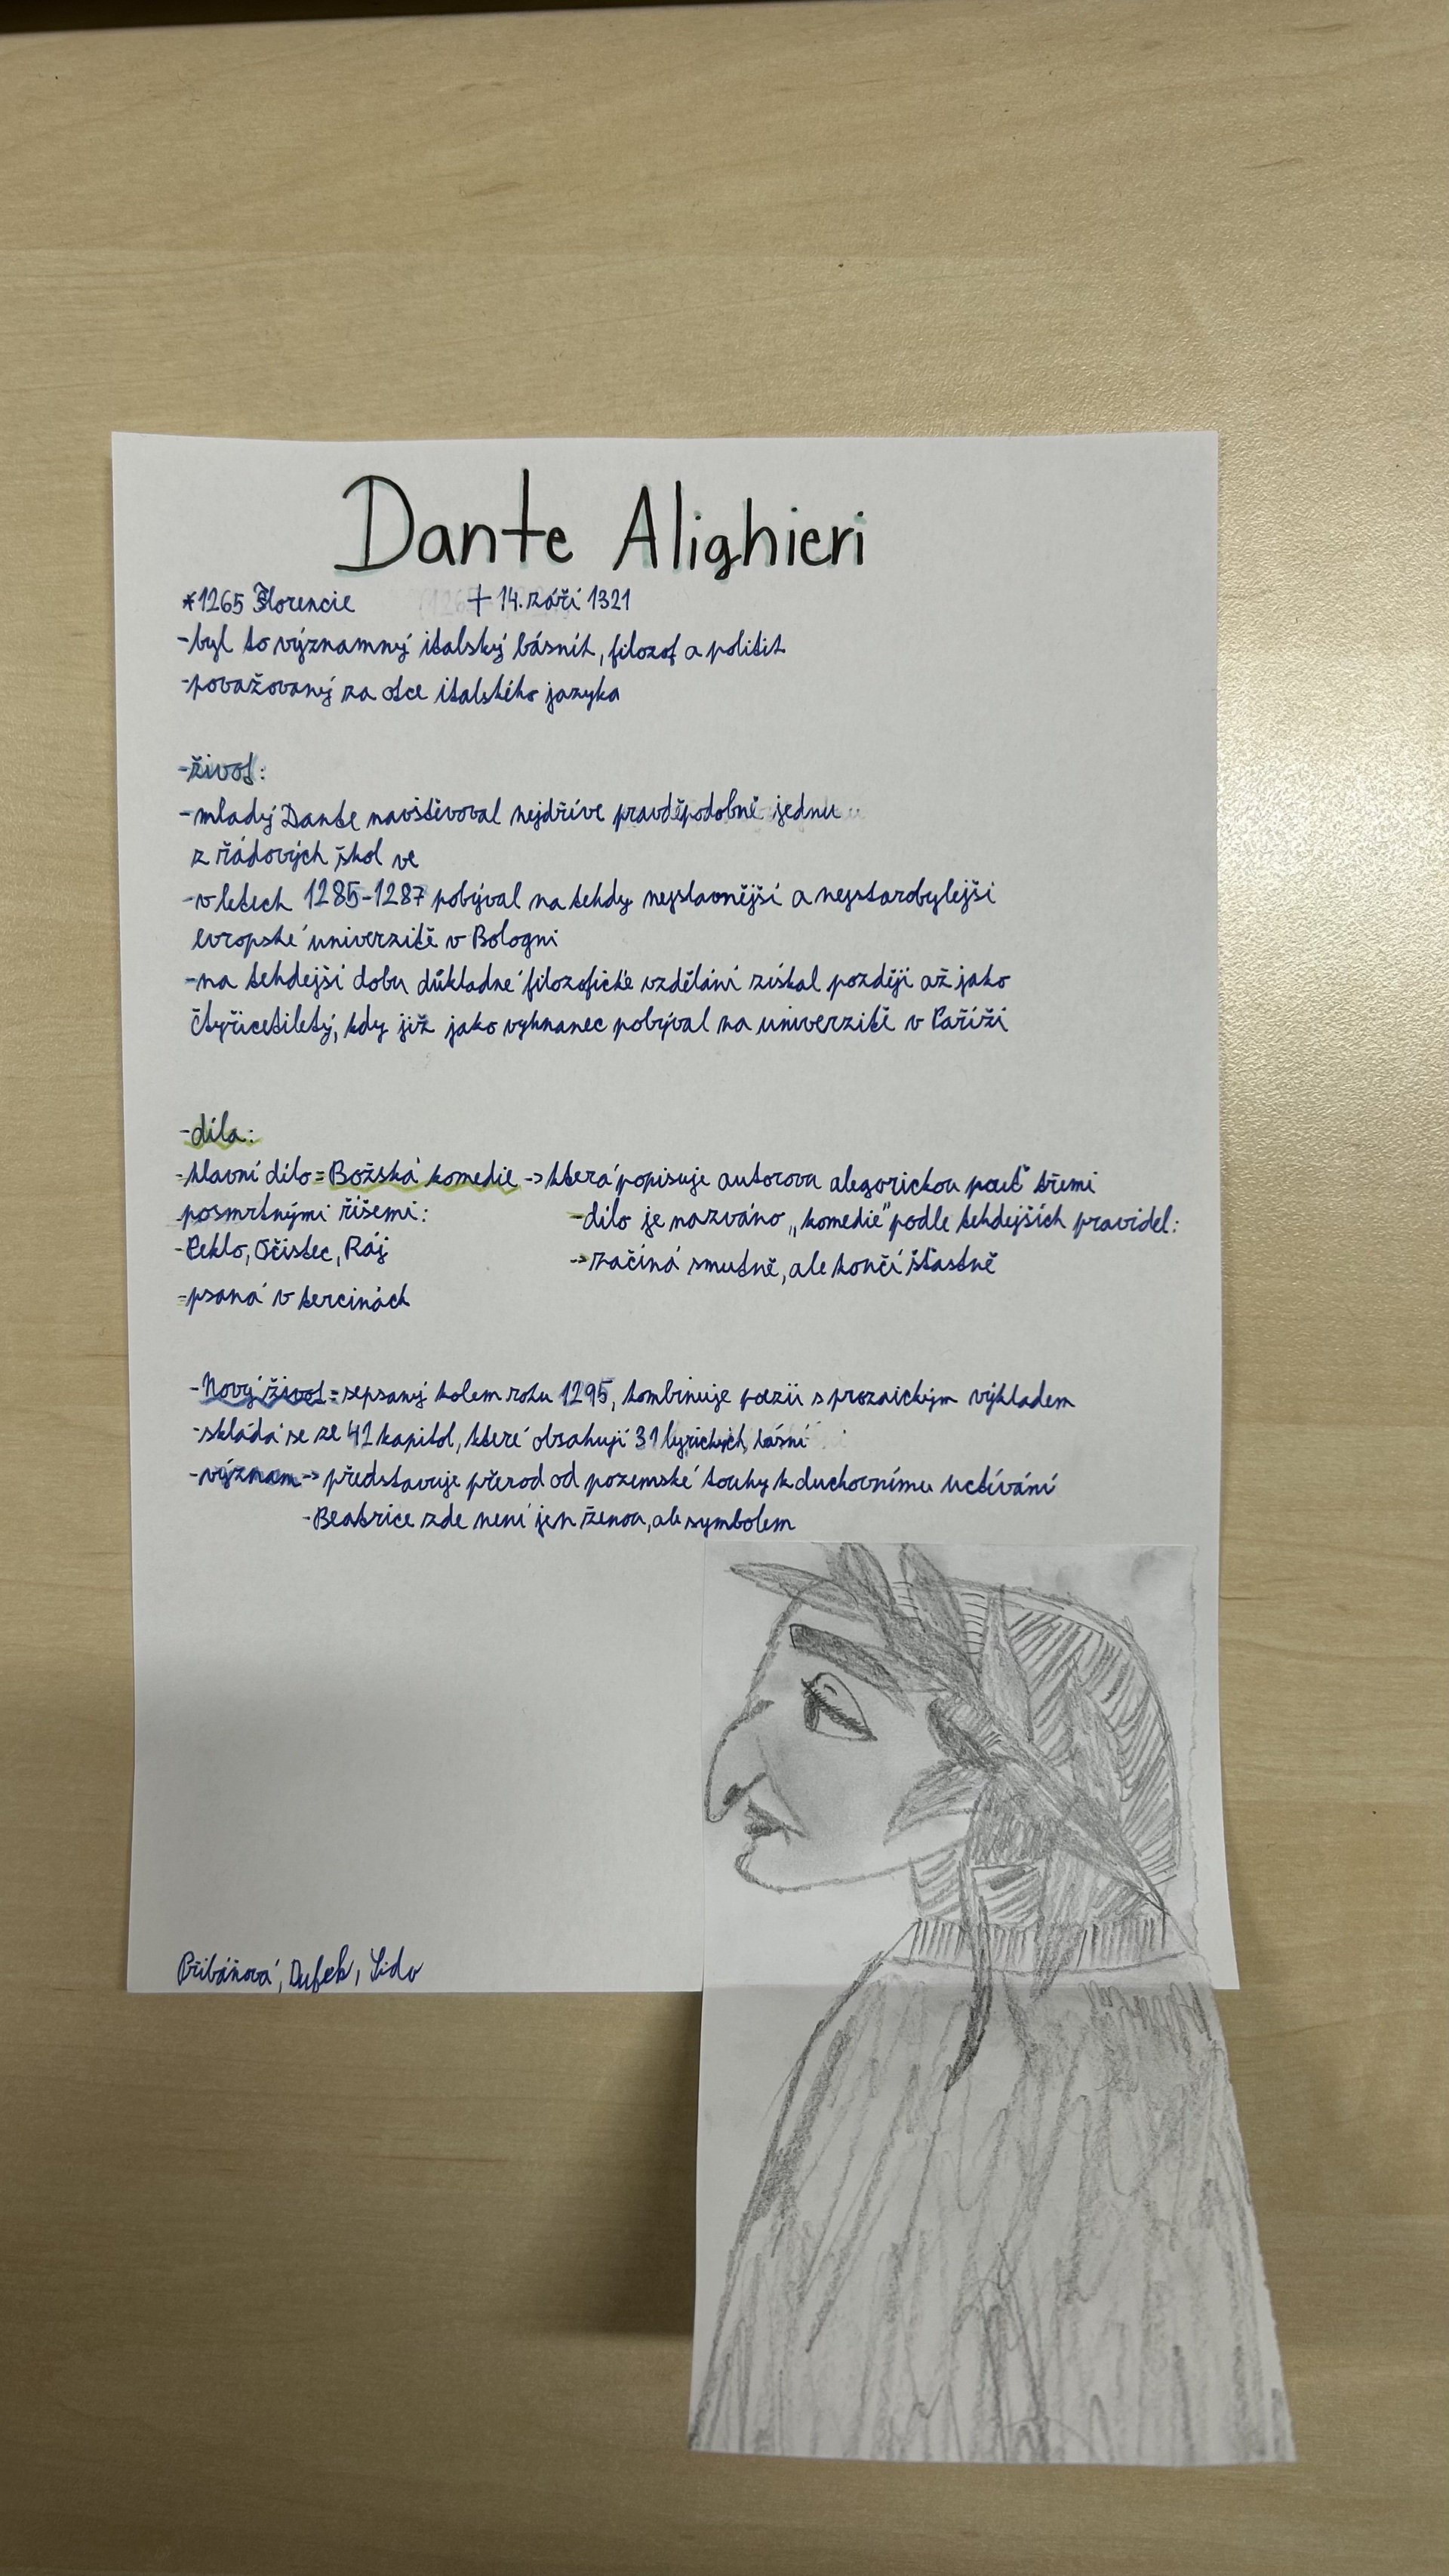 Dante Alighieri
*1265 Florencie † 14. září 1321
-byl to významný italský básník, filozof a politik
-považovaný za otce italského jazyka
-život:
-mladý Dante navštěvoval nejdříve pravděpodobně jednu
z řádových škol ve
-v letech 1285-1287 pobýval na tehdy nejslavnější a nejstarobylejší
evropské univerzitě v Bologni
-na tehdejší dobu důkladné filozofické vzdělání získal později až jako
čtyřicetiletý, kdy již jako vyhnanec pobýval na univerzitě v Paříži
-díla:
-hlavní dílo=Božská komedie -> která popisuje autorova alegorickou pouť třemi
posmrtnými říšemi:
-Peklo, Očistec, Ráj
-psaná v tercínách
-dílo je nazváno „komedie" podle tehdejších pravidel:
->začíná smutně, ale končí šťastně
-Nový život=sepsaný kolem roku 1295, kombinuje poezii s prozaickým výkladem
-skládá se ze 42 kapitol, které obsahují 31 lyrických básní
-význam -> představuje přerod od pozemské touhy k duchovnímu uctívání
-Beatrice zde není jen ženou, ale symbolem
Dufek,